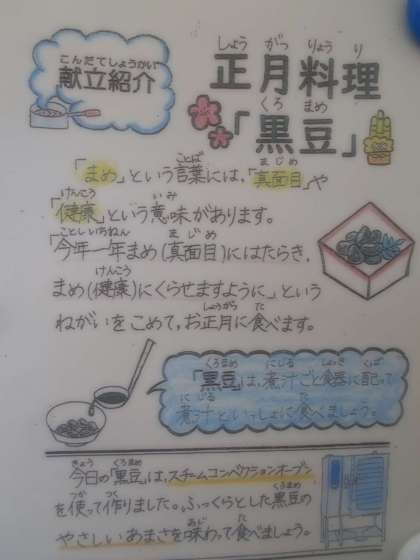 献立紹介
正月料理
「黒豆」
「まめ」という言葉には、「真面目」や
「健康」という意味があります。
「今年一年まめ(真面目)にはたらき、
まめ(健康)にくらせますように」という
ねがいをこめて、お正月に食べます。
「黒豆」は、煮汁ごと食器に配って
煮汁といっしょに食べましょう。
今日の「黒豆」は、スチームコンベクションオーブン
を使って作りました。ふっくらとした黒豆の
やさしいあまさを味わって食べましょう。